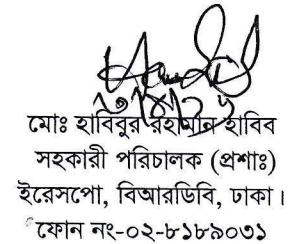 মোঃ হাবিবুর রহমান হাবিব
সহকারী পরিচালক (প্রশাঃ)
ইরেসপো, বিআরডিবি, ঢাকা।
ফোন নং-০২-৮১৮৯০৩১